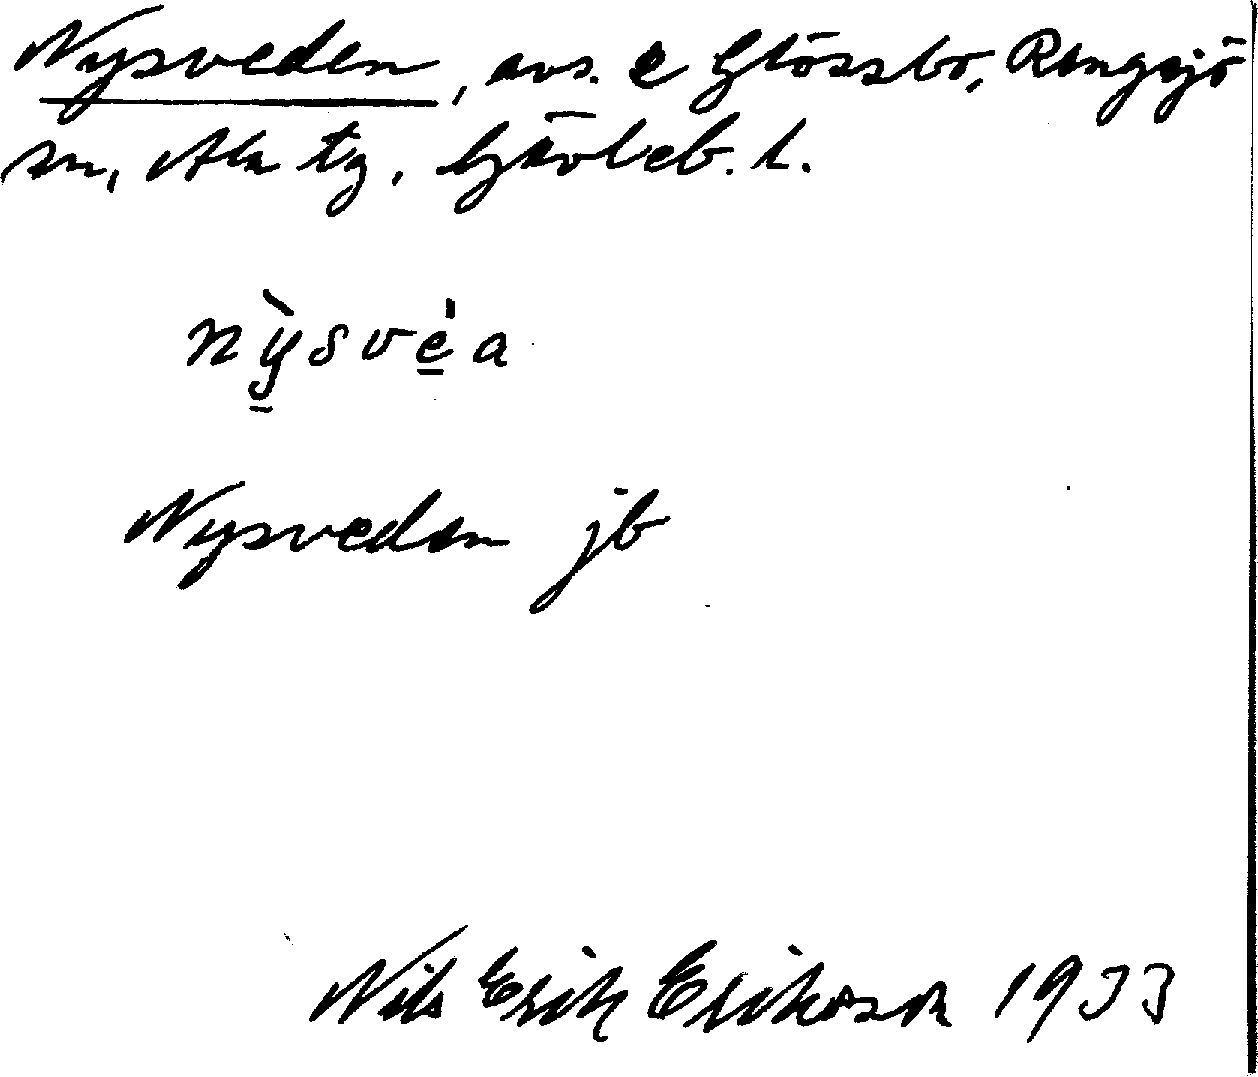 Nysveden, avs. e Glössbo, Rengsjö
sn, Ala tg, Gävleb. l.
nỳsve̠̍a
Nysveden jb
Nils Erik Eriksson 1933